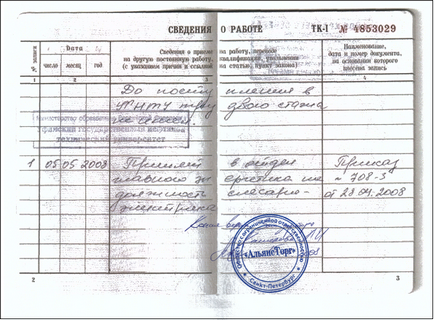 СВЕДЕНИЯ О РАБОТЕ ТК-I № 4853029
№ записи
Дата
число месяц год
Сведения о приеме на работу, переводе
на другую постоянную работу, квалификации, увольнении
(с указанием причин и ссылкой на статью, пункт закона)
Наименование,
дата и номер документа,
на основании которого
внесена запись
1 2 3 4
До поступления в
УГНТУ трудового стажа
не имел
Министерство образования
Уфимский государственный нефтяной
технический университет
1 05 05 2008 Принят в отдел Приказ
главного энергетика на № 708-з
должность слесаря- от 28.04.2008
электрика
«АльянсТорг»
Санкт-Петербург
2 3